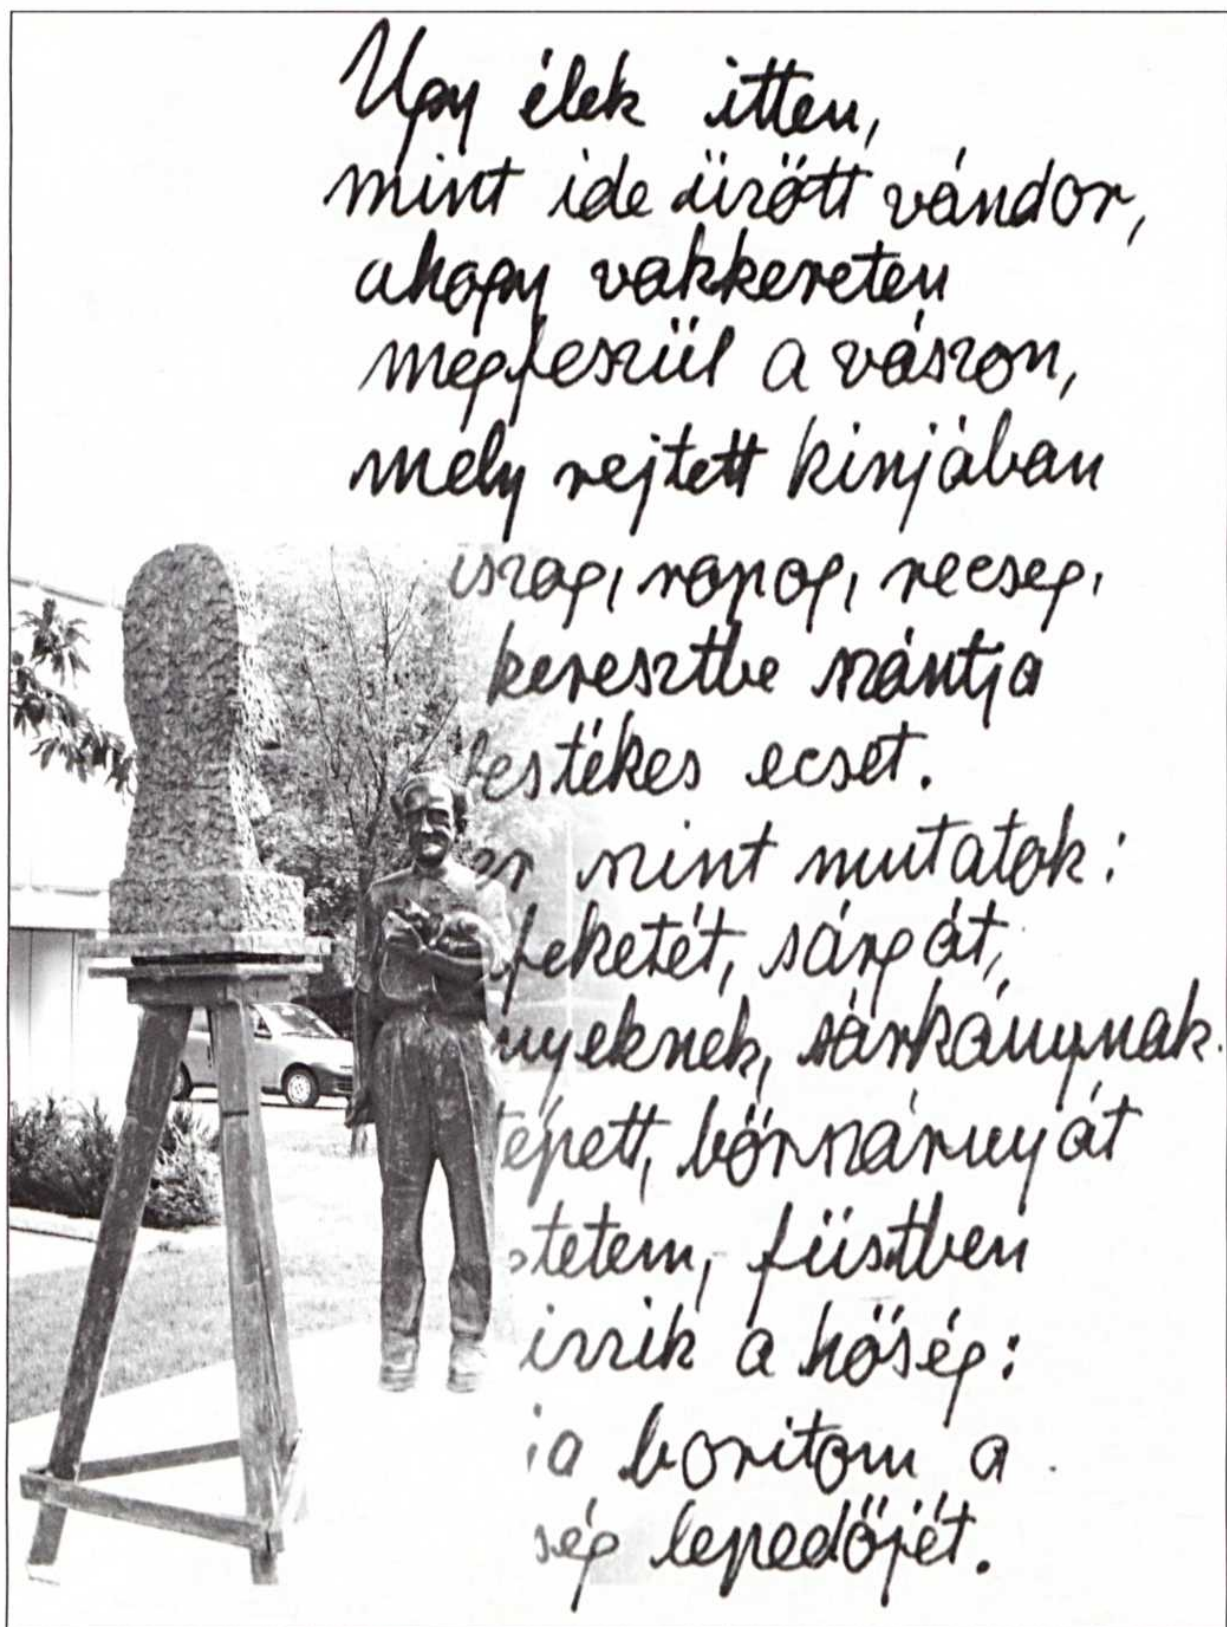 Úgy élek itten,
mint ide űzött vándor,
ahogy vakkereten
megfeszül a vászon,
mely rejtett kinjában
iszog, ropog, recseg,
keresztbe szántja
festékes ecset.
szint mutatok:
feketét, sárgát,
nyeknek, sárkánynak.
tépett, bőrszárnyát
tetem, füstben
izzik a hőség:
ia boritom a
ség lepedőjét.